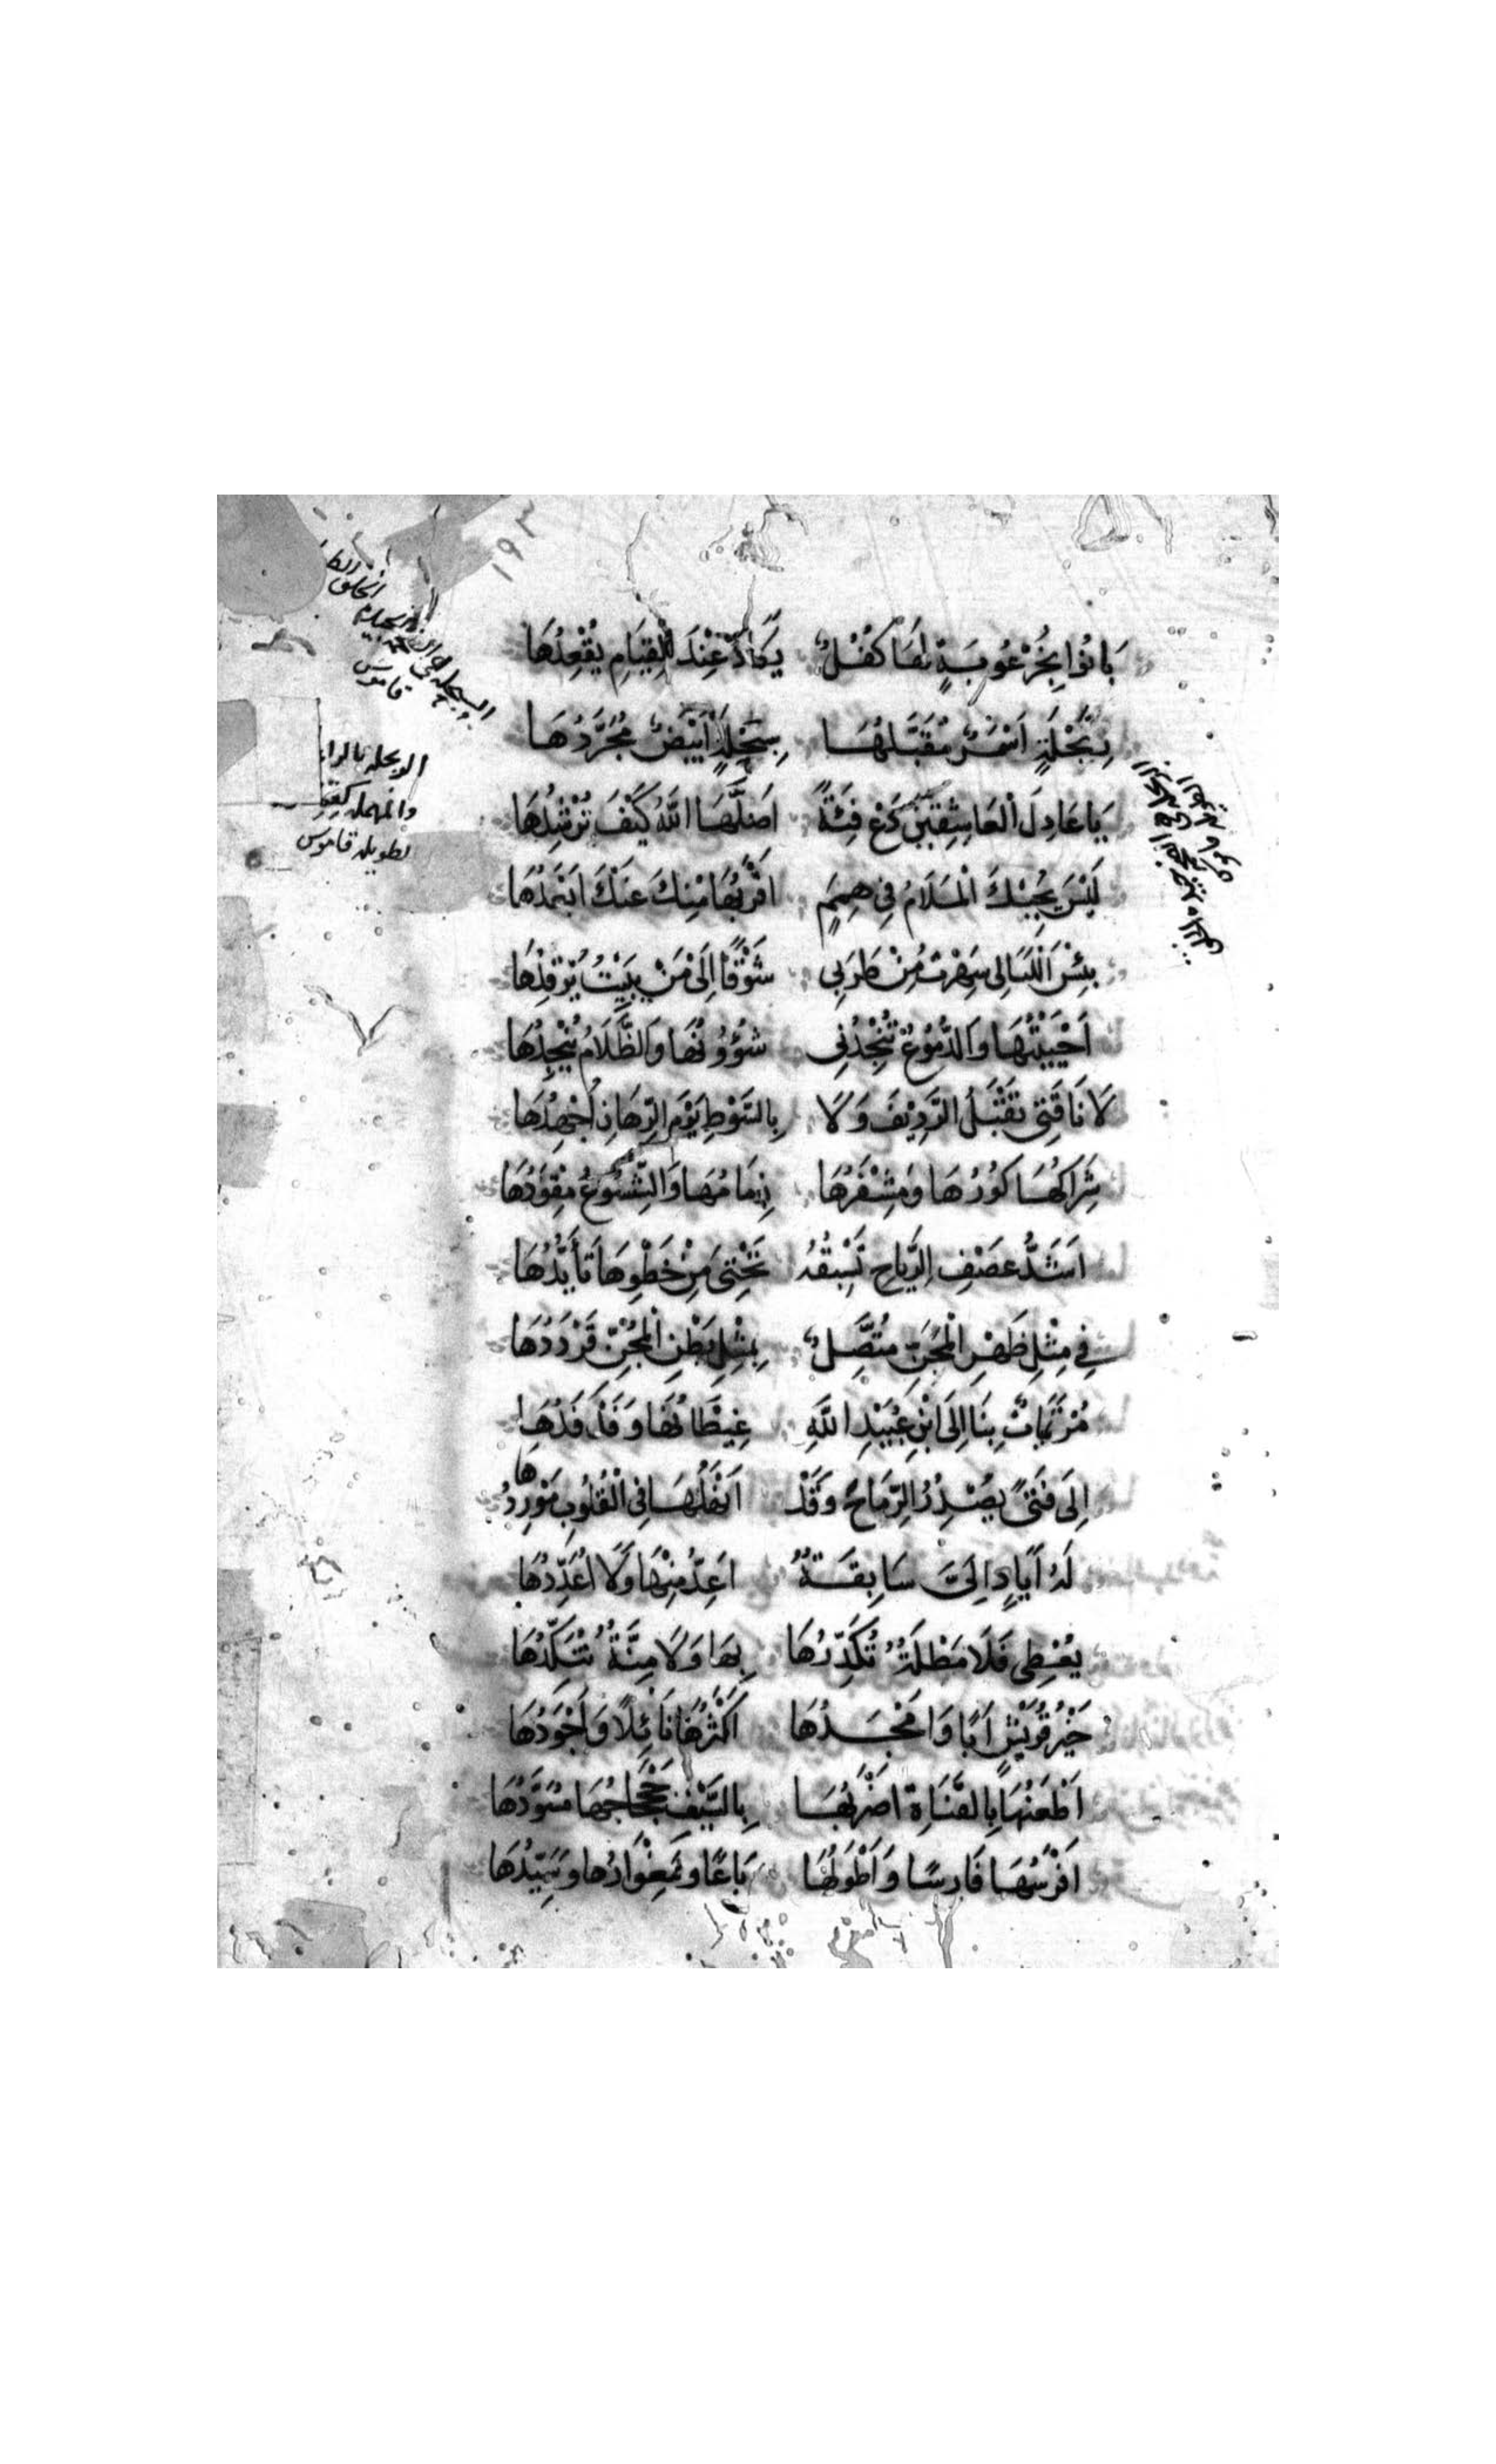 ١٩٣
بَانُوا بِخُرْعُوبَةٍ لَهَا كَفَلٌ يَكَادُ عِنْدَ الْقِيَامِ يُقْعِدُهَا
رِبَحْلَةٍ اَسْمَرٌ مُقَبَّلُهَا سِبَحْلَةٍ اَبْيَضٌ مُجَرَّدُهَا
يَا عَاذِلَ الْعَاشِقِينَ دَعْ فِئَةً اَضَلَّهَا اللَّهُ كَيْفَ تُرْشِدُهَا
لَيْسَ يُحِيكُ الْمَلَامُ فِي هِمَمٍ اَقْرَبُهَا مِنْكَ عَنْكَ اَبْعَدُهَا
بِئْسَ اللَّيَالِى سَهِرْتُ مِنْ طَرَبِى شَوْقًا اِلَى مَنْ يَبِيْتُ يَرْقُدُهَا
اَحْيَيْتُهَا وَالدُّمُوعُ تُنْجِدُنِى شُؤُوْنُهَا وَالظَّلَامُ يُنْجِدُهَا
لَا نَاقَتِى تَقْبَلُ الرَّدِيْفَ وَلَا بِالسَّوْطِ يَوْمَ الرِّهَانِ اُجْهِدُهَا
شِرَاكُهَا كُوْرُهَا وَمِشْفَرُهَا زِمَامُهَا وَالشُّسُوعُ مِقْوَدُهَا
اَشَدُّ عَصْفِ الرِّيَاحِ تَسْبِقُهُ تَحْتِىَ مِنْ خَطْوِهَا تَأَيُّدُهَا
فِي مِثْلِ ظَهْرِ الْمِجَنِّ مُتَّصِلٌ بِمِثْلِ بَطْنِ الْمِجَنِّ قَرْدَدُهَا
مُرْتَمِيَاتٌ بِنَا اِلَى ابْنِ عُبَيْدِ اللَّهِ غِيطَانُهَا وَفَدْفَدُهَا
اِلَى فَتًى يُصْدِرُ الرِّمَاحَ وَقَدْ اَنْهَلَهَا فِى الْقُلُوبِ مَوْرِدُهَا
لَهُ اَيَادٍ اِلَىَّ سَابِقَةٌ اَعِدُّ مِنْهَا وَلَا اُعَدِّدُهَا
يُعْطِى فَلَا مَظْلَةٌ تُكَدِّرُهَا بِهَا وَلَا مِنَّةٌ تُنَكِّدُهَا
خَيْرُ قُرَيْشٍ اَبًا وَاَمْجَدُهَا اَكْثَرُهَا نَائِلًا وَاَجْوَدُهَا
اَطْعَنُهَا بِالْقَنَاةِ اَضْرَبُهَا بِالسَّيْفِ جَحْجَاحُهَا مُسَوَّدُهَا
اَفْرَسُهَا فَارِسًا وَاَطْوَلُهَا بَاعًا وَمِغْوَارُهَا وَسَيِّدُهَا
قاموس
الربحله بالراء
والمهمله كقمطر
طويله قاموس